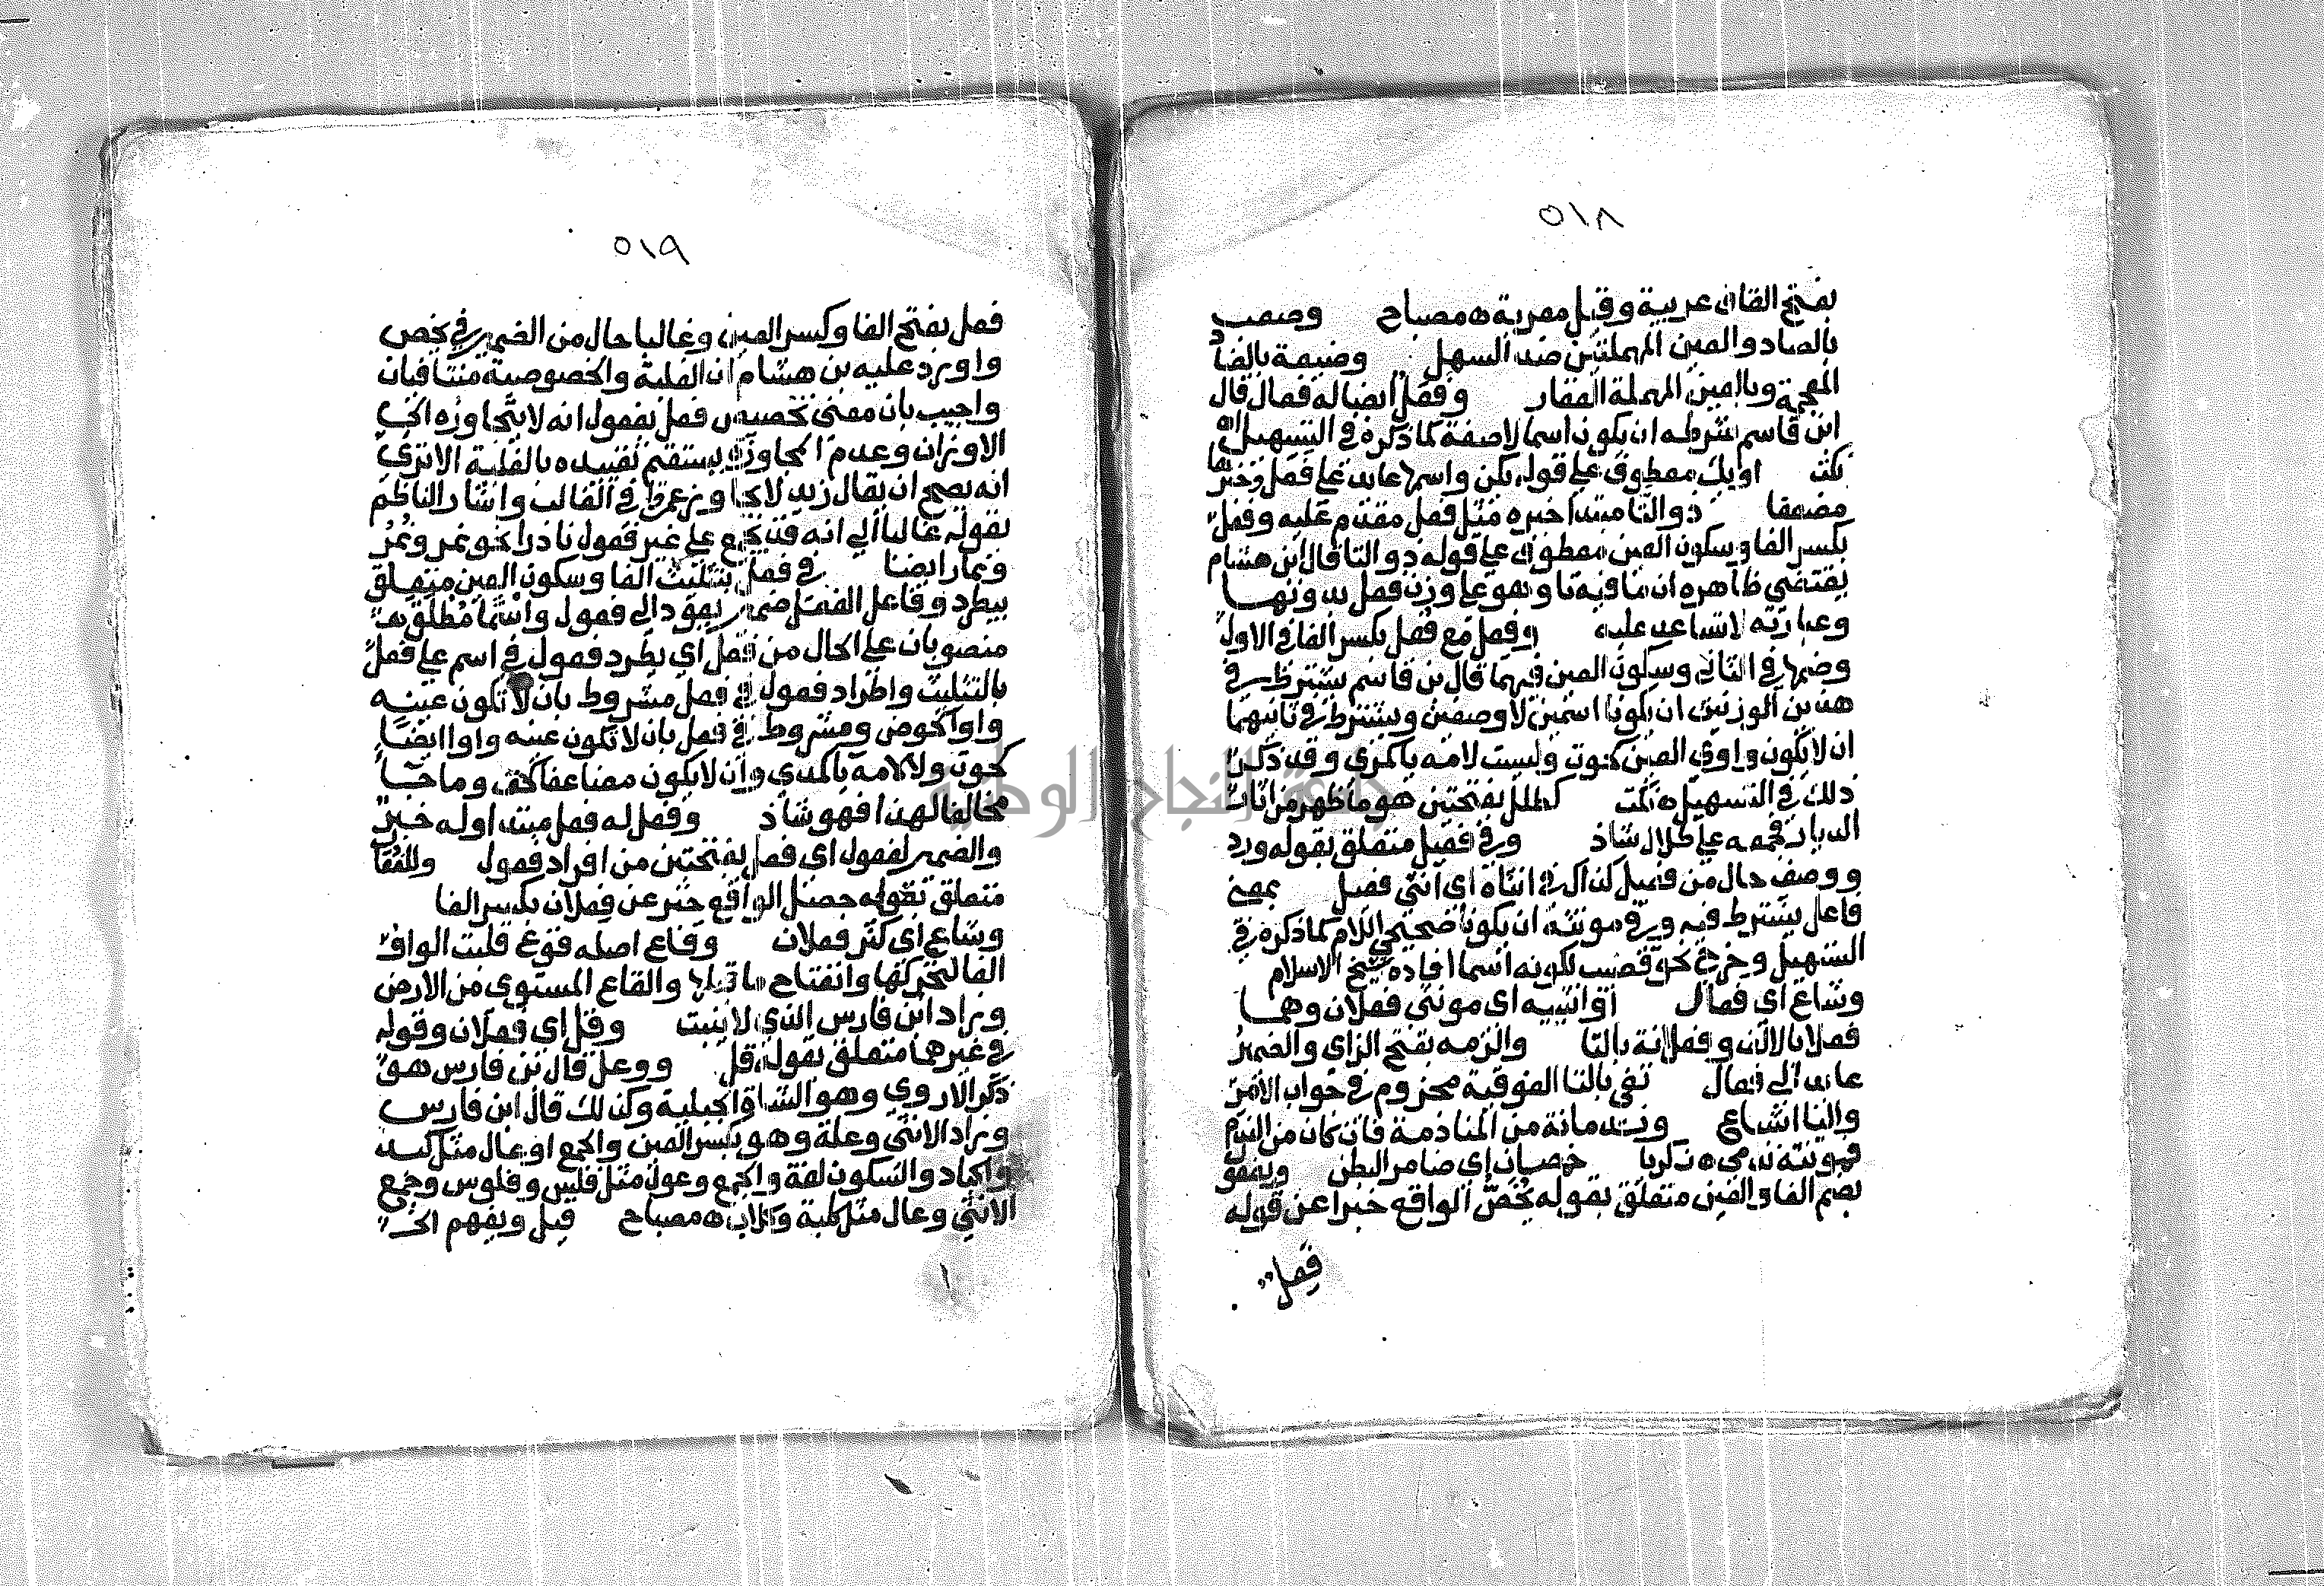 ٥١٨
بفتح القاف عربية وقيل معربة ه مصباح وصعب
بالصاد والعين المهملتين ضد السهل وضيعة بالضاد
المعجمة وبالعين المهملة العقار وفعل ايضا له فعال قال
ابن قاسم شرطه ان يكون اسما لا صفة كما ذكره في التسهيل اه
نكت اويك معطوف على قوله يكن واسمها عايد على فعل وخبرها
مضعفا ذو التا مبتدا خبره مثل فعل مقدم عليه وفعل
بكسر الفا وسكون العين معطوف على قوله ذو التا قال ابن هشام
يقتضي ظاهره ان ما فيه تا وهو على وزن فعل بدونها
وعبارته لا تساعد عليه وفعل مع فعل بكسر الفا في الاول
وضمها في الثاني وسكون العين فيهما قال بن قاسم يشترط في
هذين الوزنين ان يكونا اسمين لا وصفين ويشترط في ثانيهما
ان لا يكون واوي العين كحوت وليست لامه يا كمدى وقد ذكر
ذلك في التسهيل ه نكت كطلل بفتحتين هو ما ظهر من اثار
الديار فجمعه على طلال شاذ وفي فعيل متعلق بقوله ورد
ووصف حال من فعيل كذاك في انثاه اي انثى فعيل بمعنى
فاعل يشترط فيه وفي مونثه ان يكونا صحيحي اللام كما ذكره في
التسهيل وخرج نحو قضيب لكونه اسما افاده شيخ الاسلام
وشاع اي فعال او انثييه اي مونثي فعلان وهما
فعلا بالالف وفعلانة بالتا والزمه بفتح الزاي والضمير
عايد الى فعال تفي بالتا الفوقية مجزوم في جواب الامر
واليا اشباع وندمانة من المنادمة فان كان من الندم
فمونثه ندمى ه زكريا خمصان اي ضامر البطن وبفعول
بضم الفا والعين متعلق بقوله يخص الواقع خبرا عن قوله
فعل
٥١٩
فعل بفتح الفا وكسر العين وغالبا حال من الضمير في يخص
واورد عليه بن هشام ان الغلبة والخصوصية متنافيان
واجيب بان معنى تخصيص فعل بفعول انه لا يتجاوزه الى
الاوزان وعدم المجاوزة يستقيم تقييده بالغلبة الا ترى
انه يصح ان يقال زيد لا يجاوز عمرا في الغالب واشار الناظم
بقوله غالبا الى انه قد يجمع على غير فعول نادرا نحو نمر ونمر
ونمار ايضا في فعل بتثليث الفا وسكون العين متعلق
بيطرد وفاعل الفعل ضمير يعود الى فعول واسما مطلق الفا
منصوبان على الحال من فعل اي يطرد فعول في اسم على فعل
بالتثليث واطراد فعول في فعل مشروط بان لا تكون عينه
واوا كحوض ومشروط في فعل بان لا تكون عينه واوا ايضا
كحوت ولا لامه يا كمدي وان لا يكون مضاعفا كخف وما جا
مخالفا لهذا فهو شاذ وفعل له فعل مبتدا وله خبر
والضمير لفعول اي فعل بفتحتين من افراد فعول وللفعا
متعلق بقوله حصل الواقع خبر عن فعلان بكسر الفا
وشاع اي كثر فعلان وقاع اصله قوع قلبت الواو
الفا لتحركها وانفتاح ما قبلها والقاع المستوي من الارض
وزاد ابن فارس الذي لا ينبت وقل اي فعلان وقوله
في غيرهما متعلق بقوله قل ووعل قال بن فارس هو
ذكر الاروي وهو الشاة الجبلية وكذلك قال ابن فارس
وزاد الانثى وعلة وهو بكسر العين والجمع اوعال مثل كبد
واكباد والسكون لغة والجمع وعول مثل فلس وفلوس وجمع
الانثى وعال مثل كلبة وكلاب ه مصباح قيل ويفهم الخ
جامعة النجاح الوطنية